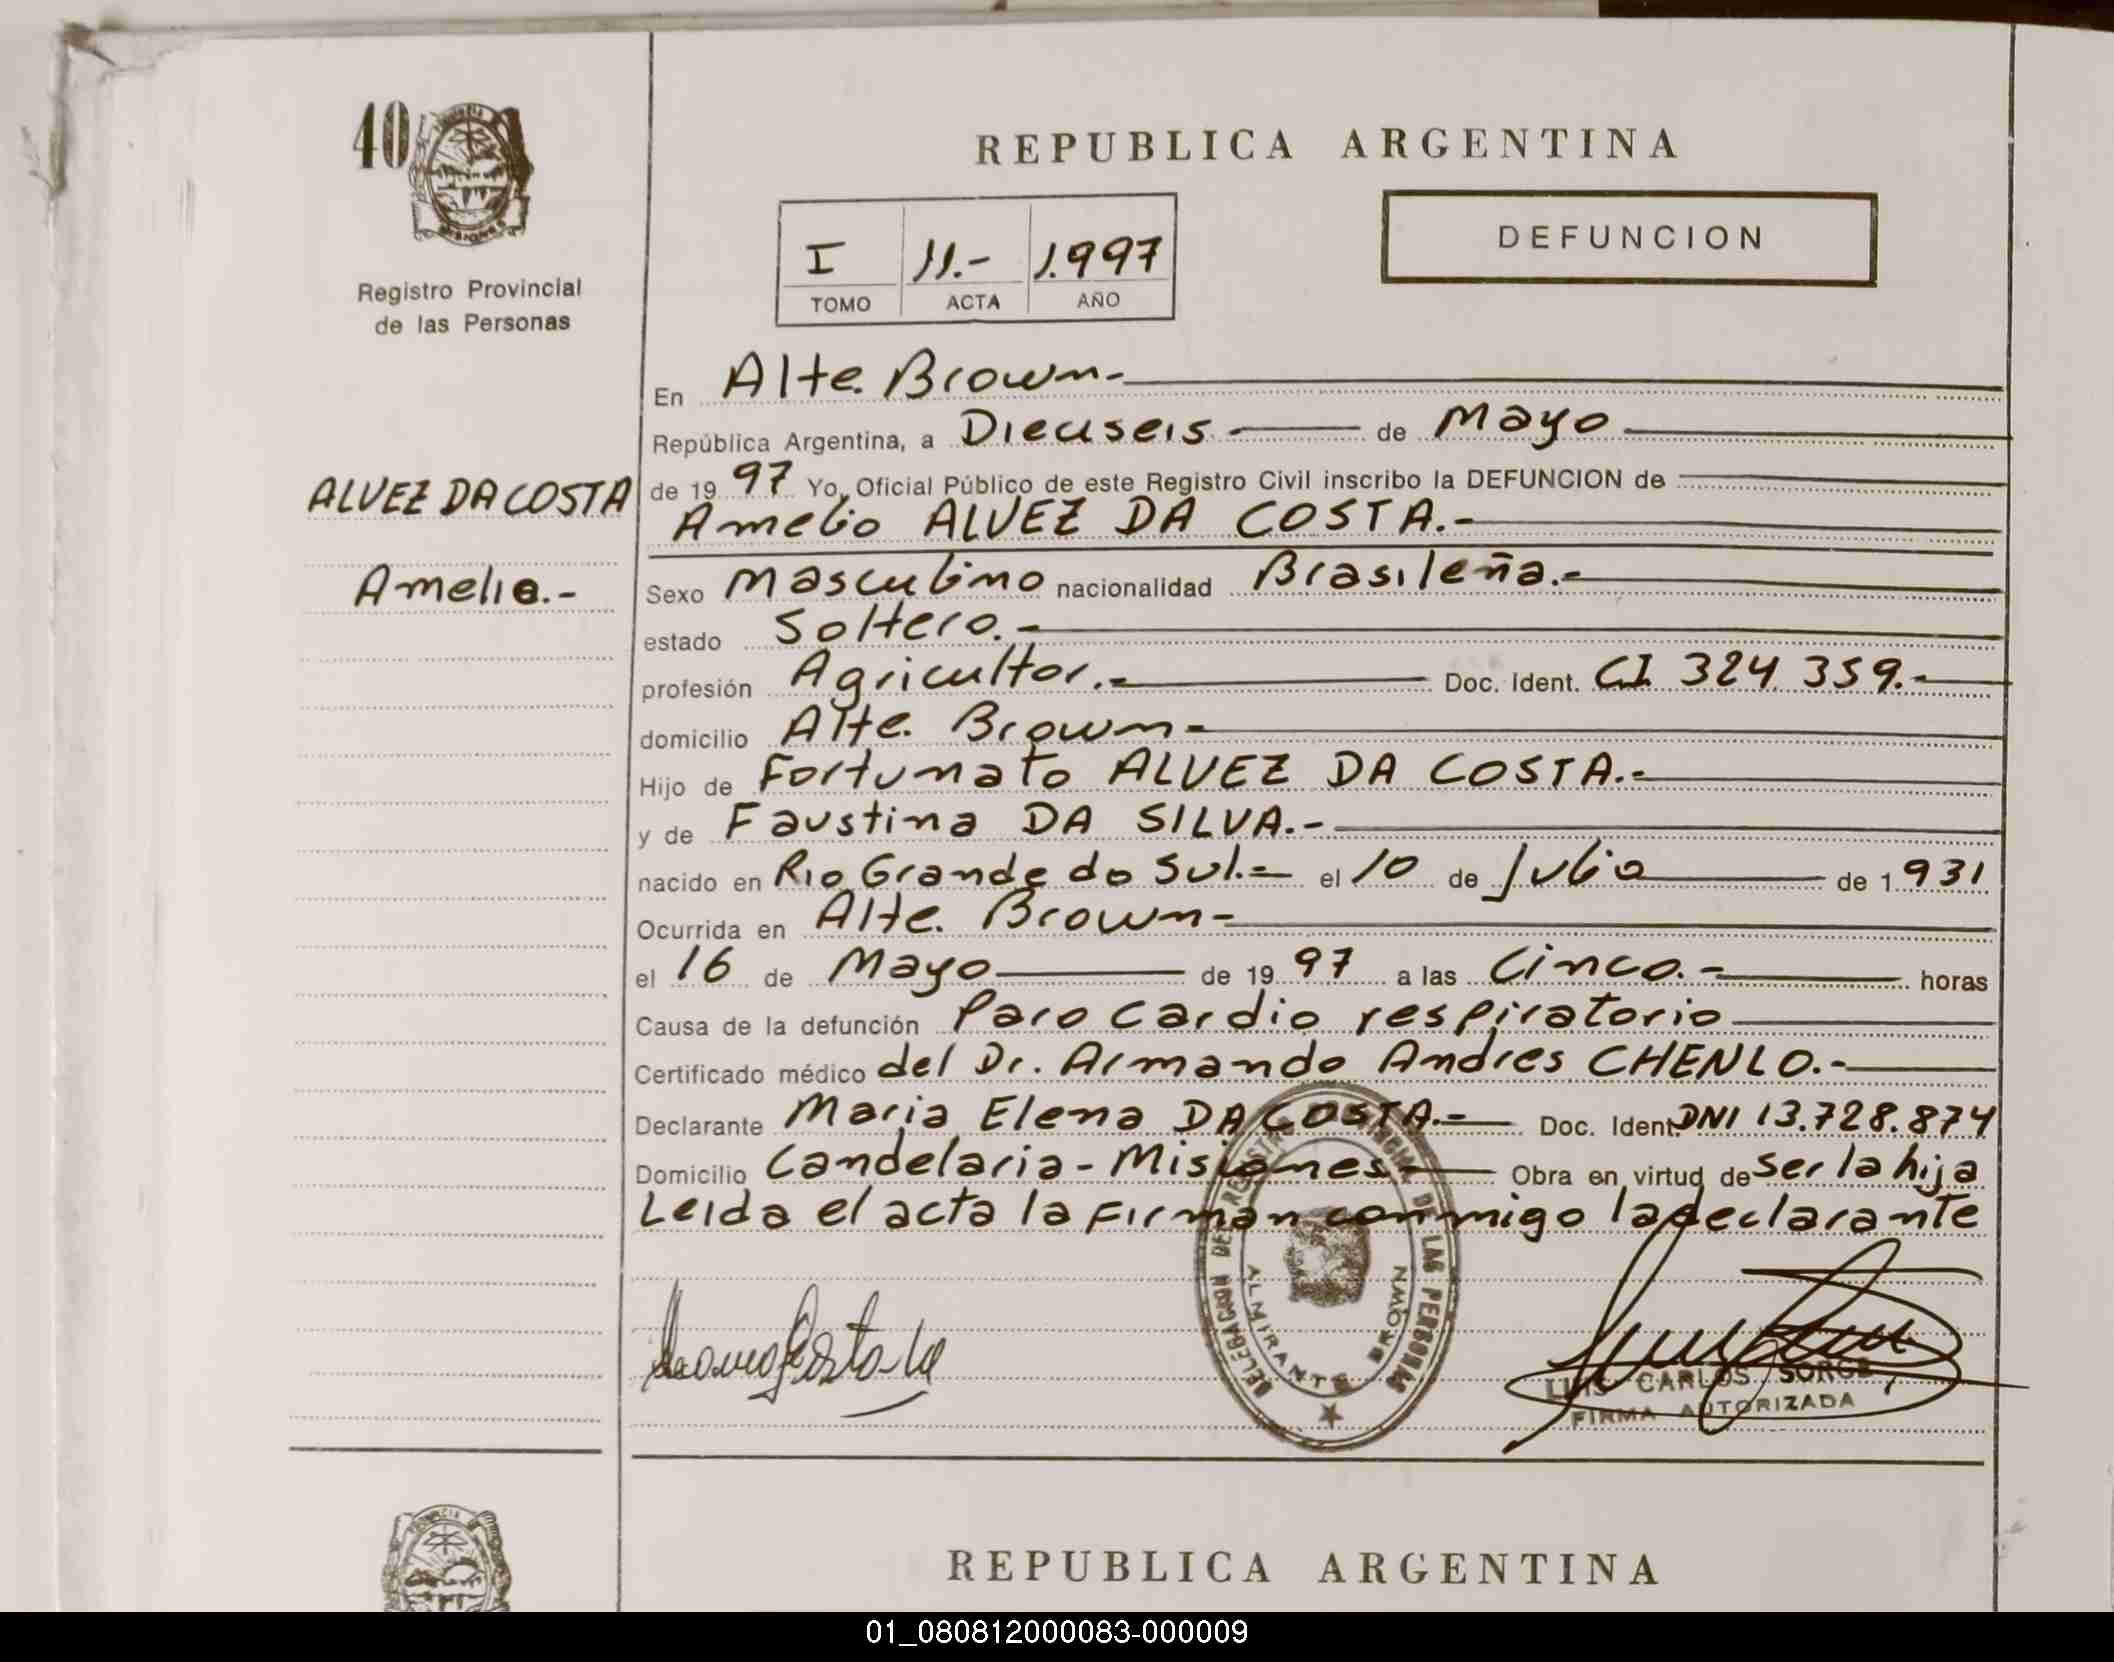 40
Registro Provincial
de las Personas
REPUBLICA ARGENTINA
I 11.- 1.997
TOMO ACTA AÑO
DEFUNCION
ALVEZ DA COSTA
Amelio.-
En Alte. Brown-
República Argentina, a Dieciseis de Mayo
de 19 97 Yo, Oficial Público de este Registro Civil inscribo la DEFUNCION de
Amelio ALVEZ DA COSTA.-
Sexo Masculino nacionalidad Brasileña.-
estado Soltero.-
profesión Agricultor.- Doc. Ident. CI. 324.359.-
domicilio Alte. Brown-
Hijo de Fortunato ALVEZ DA COSTA.-
y de Faustina DA SILVA.-
nacido en Rio Grande do Sul.- el 10 de Julio de 1 931
Ocurrida en Alte. Brown-
el 16 de Mayo de 19 97 a las Cinco.- horas
Causa de la defunción Paro Cardio respiratorio
Certificado médico del Dr. Armando Andres CHENLO.-
Declarante Maria Elena DA COSTA.- Doc. Ident. DNI 13.728.874
Domicilio Candelaria-Misiones- Obra en virtud de ser la hija
Leida el acta la firman conmigo la declarante
DELEGACION DEL REGISTRO DE LAS PERSONAS
ALMIRANTE BROWN
LUIS CARLOS SORGE
FIRMA AUTORIZADA
REPUBLICA ARGENTINA
01_080812000083-000009